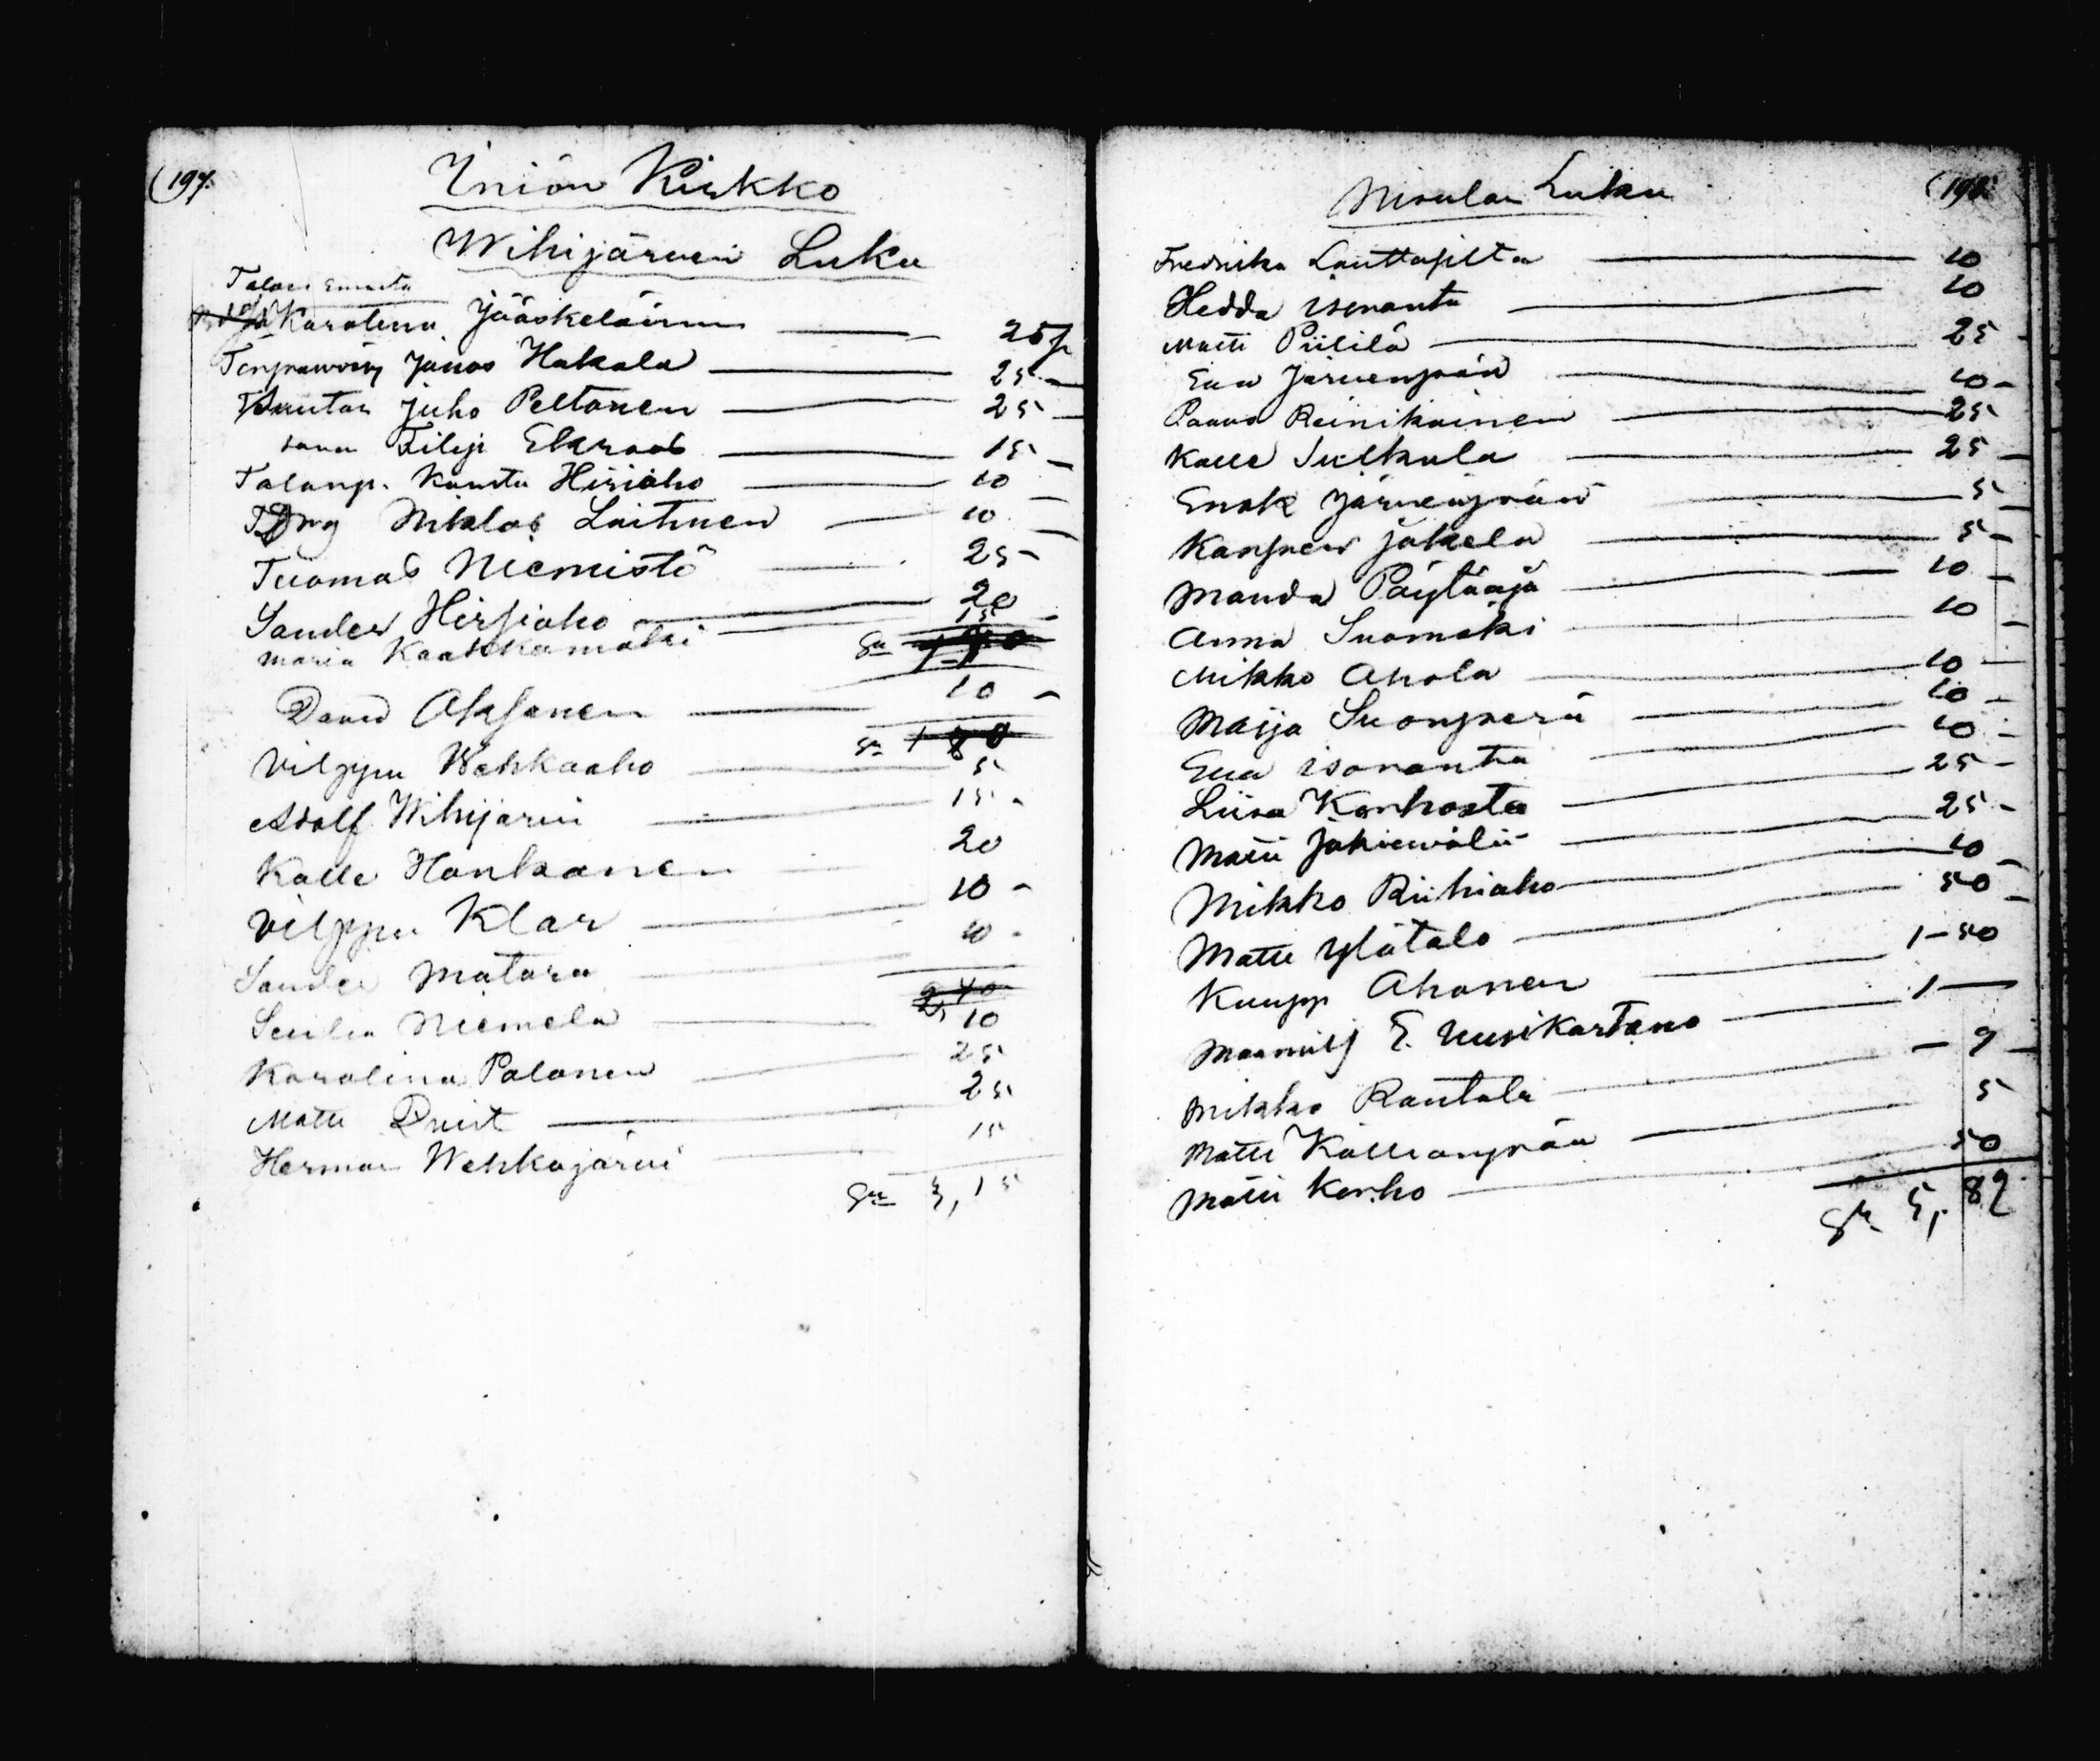 (197.
Iniön Kirkko
Wihijärven Luku
Talon Emäntä
Karolina Jääskeläinen 25 p
Jonas Hakala 25 —
Juho Peltonen 25 —
sama Filip Ekroos 15 —
Talonp. Kaustu Hirsiaho 10 —
Niklas Laitinen 10 —
Tuomas Niemistö 25 —
Sander Hirsiaho 20
Maria Kaakkomäki 15 —
Sa
David Aksonen 10 —
Sa 1 80
Vilppu Wehkaaho 5
Adolf Wihijärvi 15 -
Kalle Honkanen 20
Vilppu Klar 10 -
Sander Matara 10 -
2,40
Niemelä 10
Karolina Palonen 25
Matti Qvist 25
Herman Wehkajärvi 15
Sa 3,15
(198.
Nisulan Luku
Fredrika Lauttasilta 10
Hedda isoranta 10
Matti Piililä 25 -
Eva Järvenpää 10 —
Paavo Reinikainen 25
Kalle Sulkula 25 —
Enok Järvenpää 5 —
Kasper Jokela 5 —
Manda Pöytäaja 10 —
Anna Suomäki 10 —
Mikko Ahola 10 —
Maija Suonperä 10 —
Eva isoranta 10 -
Liisa Korhosta 25 —
Matti 25 -
Mikko Riihiaho 10 —
Matti Ylätalo 50 —
Kaupp Ahonen 1 — 50
E. Uusikartano 1 —
Mikko Rantala — 7 —
Matti Kallionpää 5
Matti Korho 50
Sa 5, 82